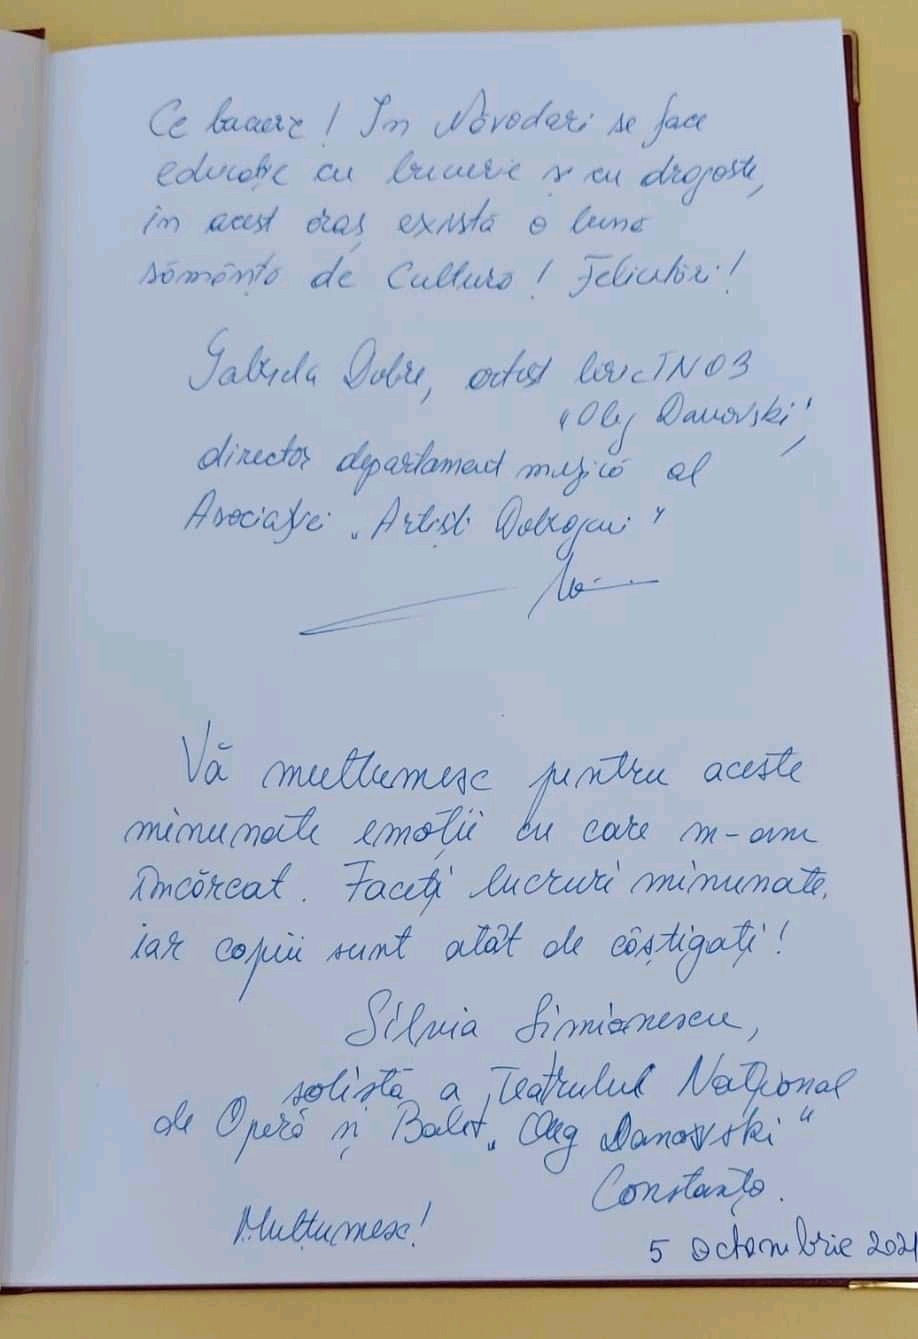 Ce bucurie! În Năvodari se face
educație cu bucurie și cu dragoste,
în acest oraș există o bună
sămânță de Cultură! Felicitări!
Gabriela Dobre, artist liric TNOB
„Oleg Danovski",
director departament muzică al
Asociației „Artiști Dobrogeni"
Vă mulțumesc pentru aceste
minunate emoții cu care m-am
încărcat. Faceți lucruri minunate,
iar copiii sunt atât de câștigați!
Silvia Simionescu,
solistă a Teatrului Național
de Operă și Balet „Oleg Danovski"
Constanța.
Mulțumesc!
5 octombrie 2021